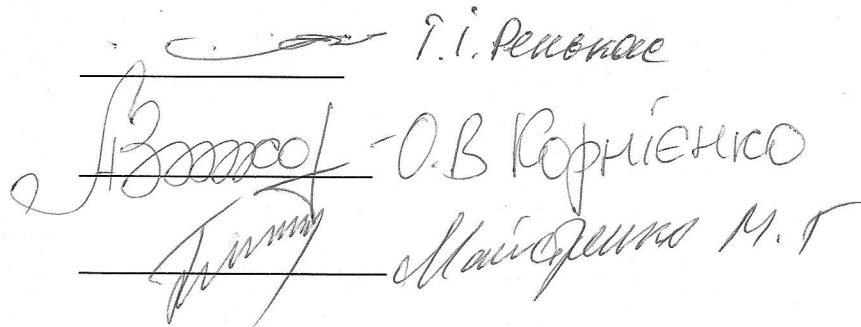 Т.І. Ренькас
О.В Корнієнко
Майстренко М.Г